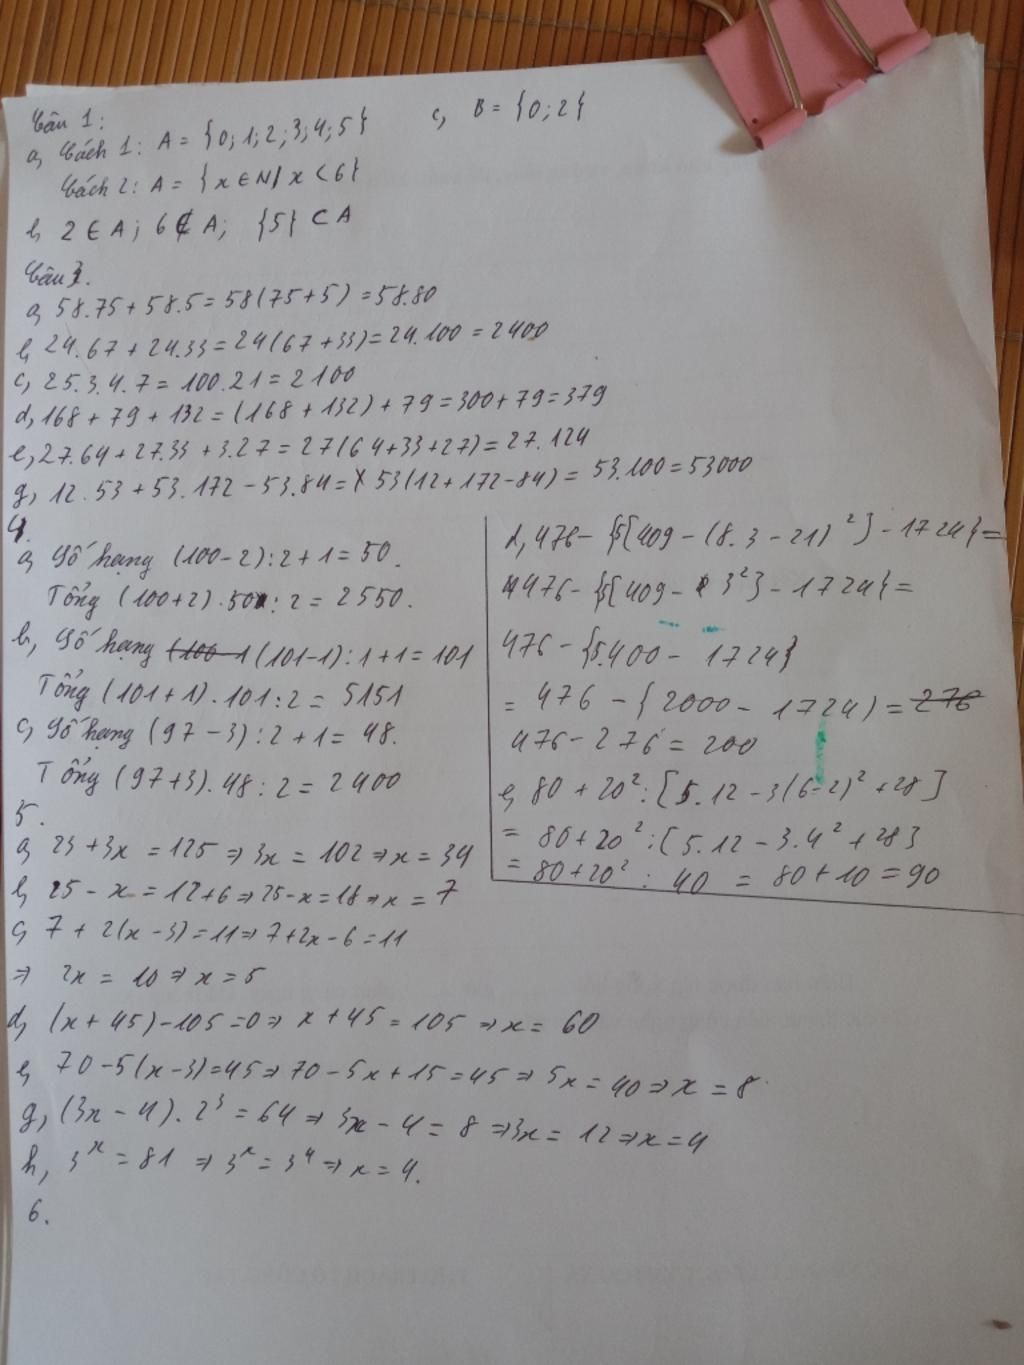 Câu 1:
a, Cách 1: A = {0; 1; 2; 3; 4; 5}
c, B = {0; 2}
Cách 2: A = {x ∈ N / x < 6}
b, 2 ∈ A; 6 ∉ A; {5} ⊂ A
Câu 3.
a, 58.75 + 58.5 = 58(75+5) = 58.80
b, 24.67 + 24.33 = 24(67+33) = 24.100 = 2400
c, 25.3.4.7 = 100.21 = 2100
d, 168 + 79 + 132 = (168 + 132) + 79 = 300 + 79 = 379
e, 27.64 + 27.33 + 3.27 = 27(64+33+27) = 27.124
g, 12.53 + 53.172 - 53.84 = 53(12+172-84) = 53.100 = 53000
4.
a, Số hạng (100-2):2+1 = 50.
Tổng (100+2).50:2 = 2550.
b, Số hạng (100-1 (101-1):1+1 = 101
Tổng (101+1).101:2 = 5151
c, Số hạng (97-3):2+1 = 48.
Tổng (97+3).48:2 = 2400
d, 476 - {5[409 - (8.3 - 21)²] - 1724} =
476 - {5[409 - 3²] - 1724} =
476 - {5.400 - 1724}
= 476 - {2000 - 1724) = 276
476 - 276 = 200
e, 80 + 20² : [5.12 - 3(6-2)² + 28]
= 80 + 20² : [5.12 - 3.4² + 28]
= 80 + 20² : 40 = 80 + 10 = 90
5.
a, 23 + 3x = 125 ⇒ 3x = 102 ⇒ x = 34
b, 25 - x = 12 + 6 ⇒ 25 - x = 18 ⇒ x = 7
c, 7 + 2(x - 3) = 11 ⇒ 7 + 2x - 6 = 11
⇒ 2x = 10 ⇒ x = 5
d, (x + 45) - 105 = 0 ⇒ x + 45 = 105 ⇒ x = 60
e, 70 - 5(x-3) = 45 ⇒ 70 - 5x + 15 = 45 ⇒ 5x = 40 ⇒ x = 8.
g, (3x - 4).2³ = 64 ⇒ 3x - 4 = 8 ⇒ 3x = 12 ⇒ x = 4
h, 3ˣ = 81 ⇒ 3ˣ = 3⁴ ⇒ x = 4.
6.